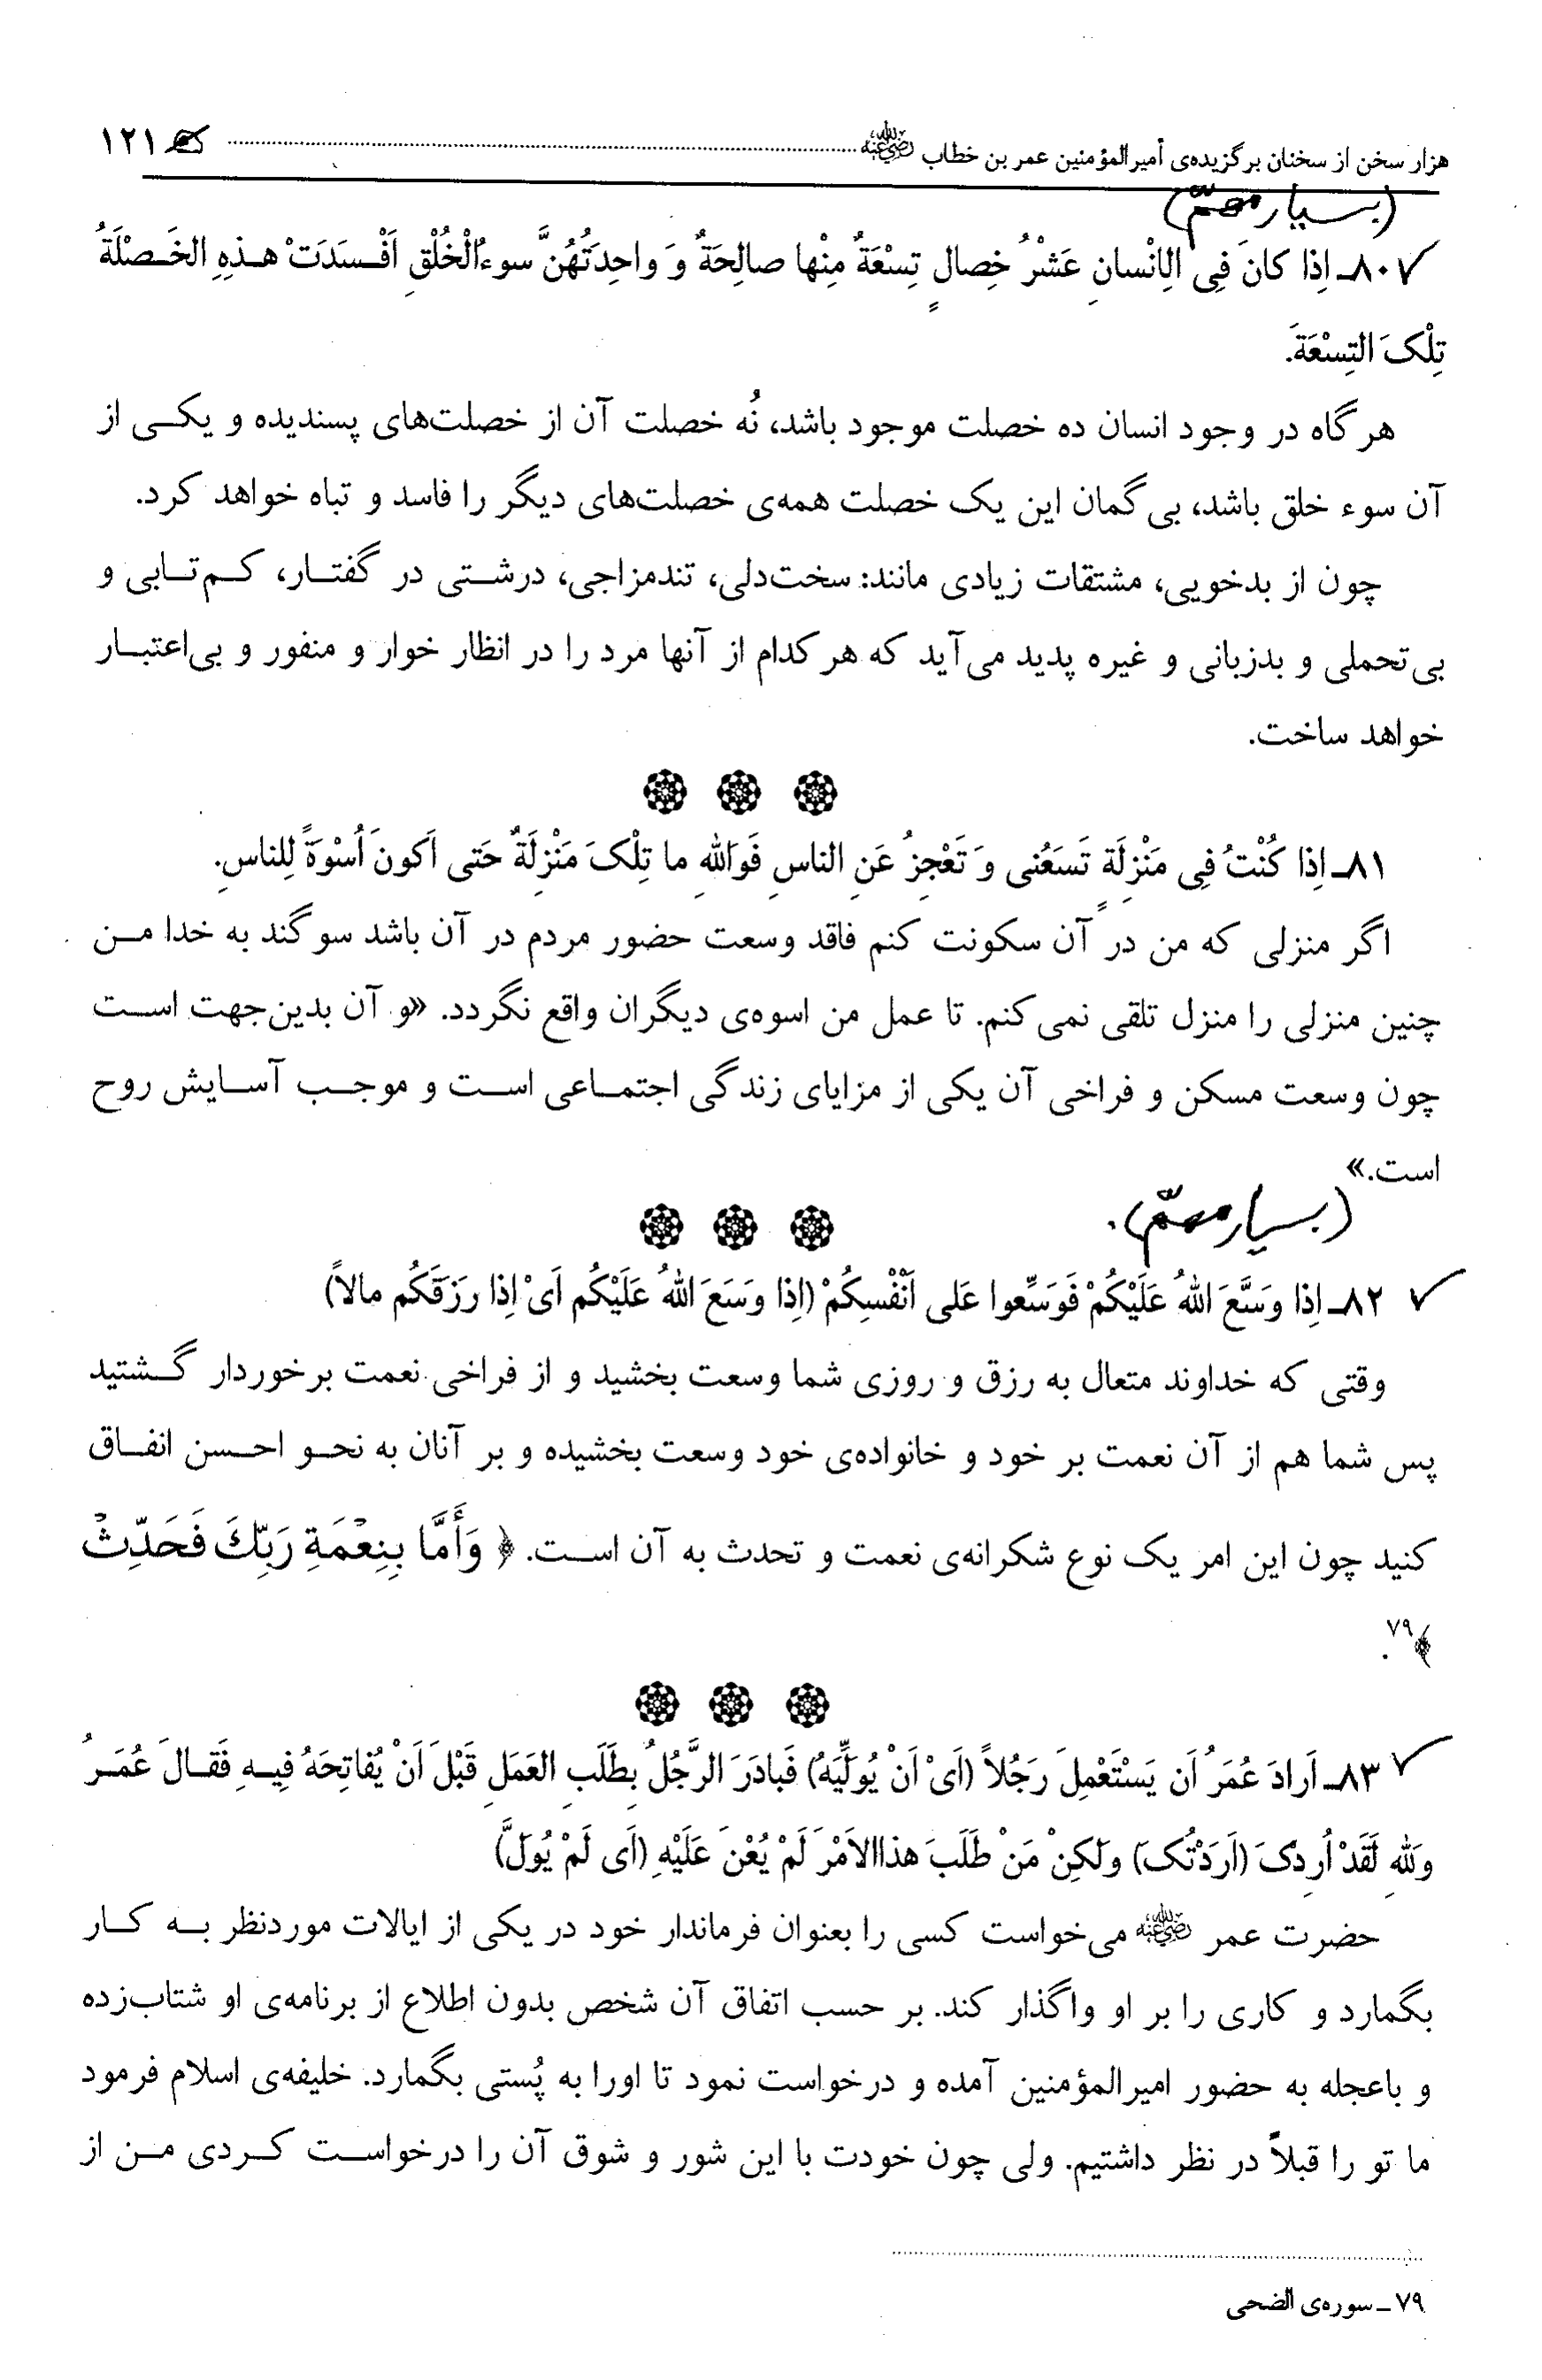 هزار سخن از سخنان برگزیده‌ی أمیرالمؤمنین عمر بن خطاب رضی الله عنه ۱۲۱
(بسیار مهمّ)
۸۰ـ اِذا کانَ فِی الِانْسانِ عَشْرُ خِصالٍ تِسْعَةٌ مِنْها صالِحَةٌ وَ واحِدَتُهُنَّ سوءُالْخُلْقِ اَفْسَدَتْ هذِهِ الخَصْلَةُ
تِلْکَ التِسْعَةَ.
هر گاه در وجود انسان ده خصلت موجود باشد، نُه خصلت آن از خصلت‌های پسندیده و یکی از
آن سوء خلق باشد، بی‌گمان این یک خصلت همه‌ی خصلت‌های دیگر را فاسد و تباه خواهد کرد.
چون از بدخویی، مشتقات زیادی مانند: سخت‌دلی، تندمزاجی، درشتی در گفتار، کم‌تابی و
بی‌تحملی و بدزبانی و غیره پدید می‌آید که هر کدام از آنها مرد را در انظار خوار و منفور و بی‌اعتبار
خواهد ساخت.
۸۱ـ اِذا کُنْتُ فِی مَنْزِلَةٍ تَسَعُنی وَ تَعْجِزُ عَنِ الناسِ فَوَاللهِ ما تِلْکَ مَنْزِلَةٌ حَتی اَکونَ اُسْوَةً لِلناسِ.
اگر منزلی که من در آن سکونت کنم فاقد وسعت حضور مردم در آن باشد سوگند به خدا من
چنین منزلی را منزل تلقی نمی‌کنم. تا عمل من اسوه‌ی دیگران واقع نگردد. «و آن بدین‌جهت است
چون وسعت مسکن و فراخی آن یکی از مزایای زندگی اجتماعی است و موجب آسایش روح
است.»
(بسیار مهمّ).
۸۲ـ اِذا وَسَّعَ اللهُ عَلَیْکُمْ فَوَسِّعوا عَلی اَنْفْسِکُمْ (اِذا وَسَعَ اللهُ عَلَیْکُم اَیْ اِذا رَزَقَکُم مالاً)
وقتی که خداوند متعال به رزق و روزی شما وسعت بخشید و از فراخی نعمت برخوردار گشتید
پس شما هم از آن نعمت بر خود و خانواده‌ی خود وسعت بخشیده و بر آنان به نحو احسن انفاق
کنید چون این امر یک نوع شکرانه‌ی نعمت و تحدث به آن است. ﴿ وَأَمَّا بِنِعْمَةِ رَبِّكَ فَحَدِّثْ
﴾۷۹.
۸۳ـ اَرادَ عُمَرُ اَن یَسْتَعْمِلَ رَجُلاً (اَیْ اَنْ یُوَلِّیَهُ) فَبادَرَ الرَّجُلُ بِطَلَبِ العَمَلِ قَبْلَ اَنْ یُفاتِحَهُ فِیهِ فَقالَ عُمَرُ
وَللهِ لَقَدْ اُرِدکَ (اَرَدْتُکَ) وَلکِنْ مَنْ طَلَبَ هذاالاَمْرَ لَمْ یُعْنَ عَلَیْهِ (اَی لَمْ یُوَلَّ)
حضرت عمر رضی الله عنه می‌خواست کسی را بعنوان فرماندار خود در یکی از ایالات موردنظر به کار
بگمارد و کاری را بر او واگذار کند. بر حسب اتفاق آن شخص بدون اطلاع از برنامه‌ی او شتاب‌زده
و باعجله به حضور امیرالمؤمنین آمده و درخواست نمود تا اورا به پُستی بگمارد. خلیفه‌ی اسلام فرمود
ما تو را قبلاً در نظر داشتیم. ولی چون خودت با این شور و شوق آن را درخواست کردی من از
۷۹ـ سوره‌ی الضحی